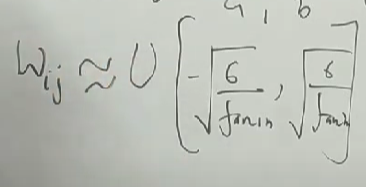 a, b
Wij ≈ U [-√(6/fanin), √(6/fanin)]